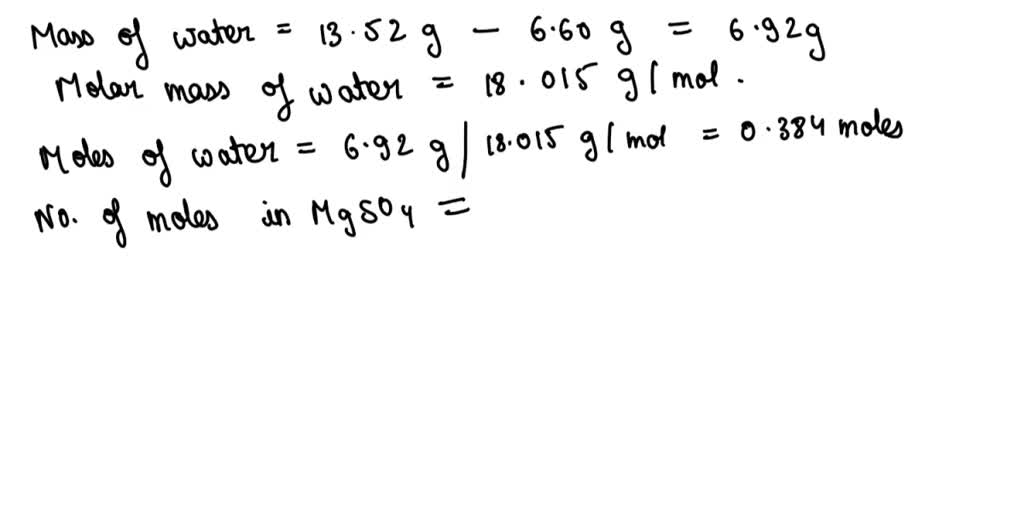 Mass of water = 13.52 g - 6.60 g = 6.92g
Molar mass of water = 18.015 g/mol.
Moles of water = 6.92 g/18.015 g/mol = 0.384 moles
No. of moles in MgSO4 =